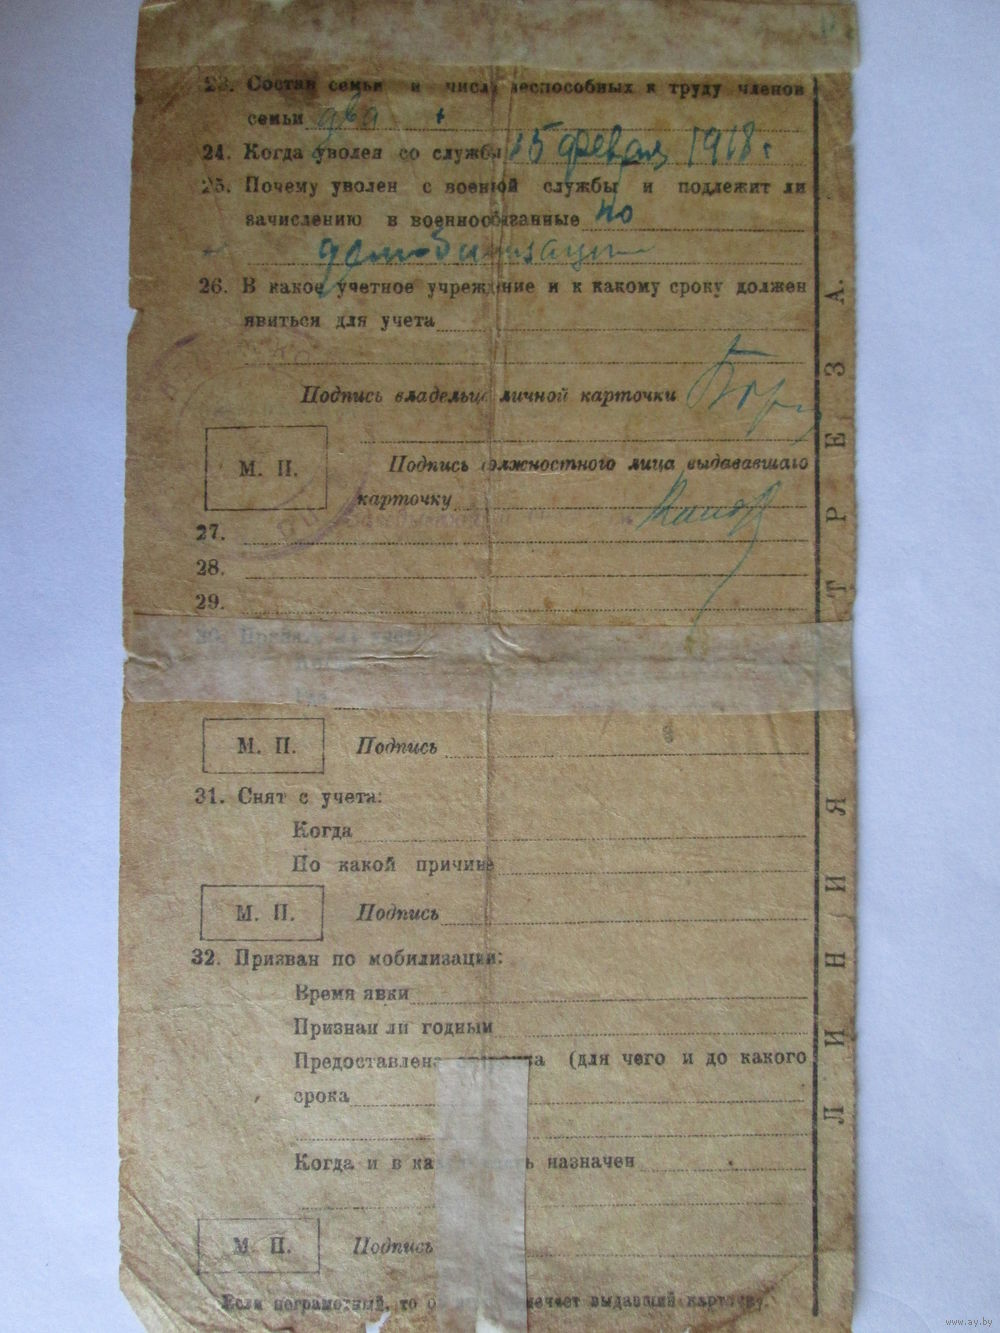 23. Состав семьи и число неспособных к труду членов
семьи два +
24. Когда уволен со службы 15 февраля 1918 г
25. Почему уволен с военной службы и подлежит ли
зачислению в военнообязанные по
демобилизации
26. В какое учетное учреждение и к какому сроку должен
явиться для учета
Подпись владельца личной карточки
М. П.
Подпись должностного лица выдававшаго
карточку
27.
28.
29.
30. Принят на учет
Когда
Где
М. П. Подпись
31. Снят с учета:
Когда
По какой причине
М. П. Подпись
32. Призван по мобилизации:
Время явки
Признан ли годным
Предоставлена отсрочка (для чего и до какого
срока
Когда и в какую часть назначен
М. П. Подпись
Если неграмотный, то отмечает выдавший карточку.
ЛИНИЯ ОТРЕЗА.
www.ay.by